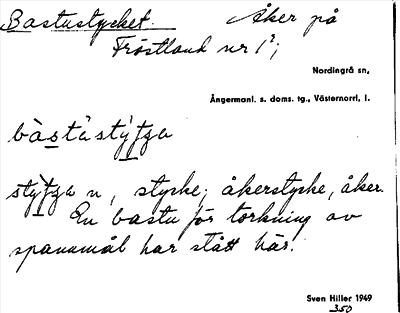 Bastustycket. Åker på
Fröstland nr 1²;
Nordingrå sn,
Ångermanl. s. doms. tg., Västernorrl. l.
bàstàstýtza
stỳtza n, stycke; åkerstycke, åker.
En bastu för torkning av
spannmål har stått här.
Sven Hiller 1949
350